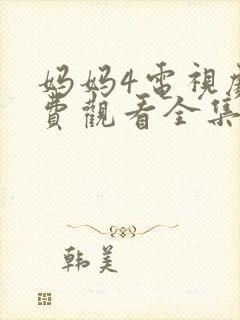 妈妈4電視劇
費觀看全集
韩美